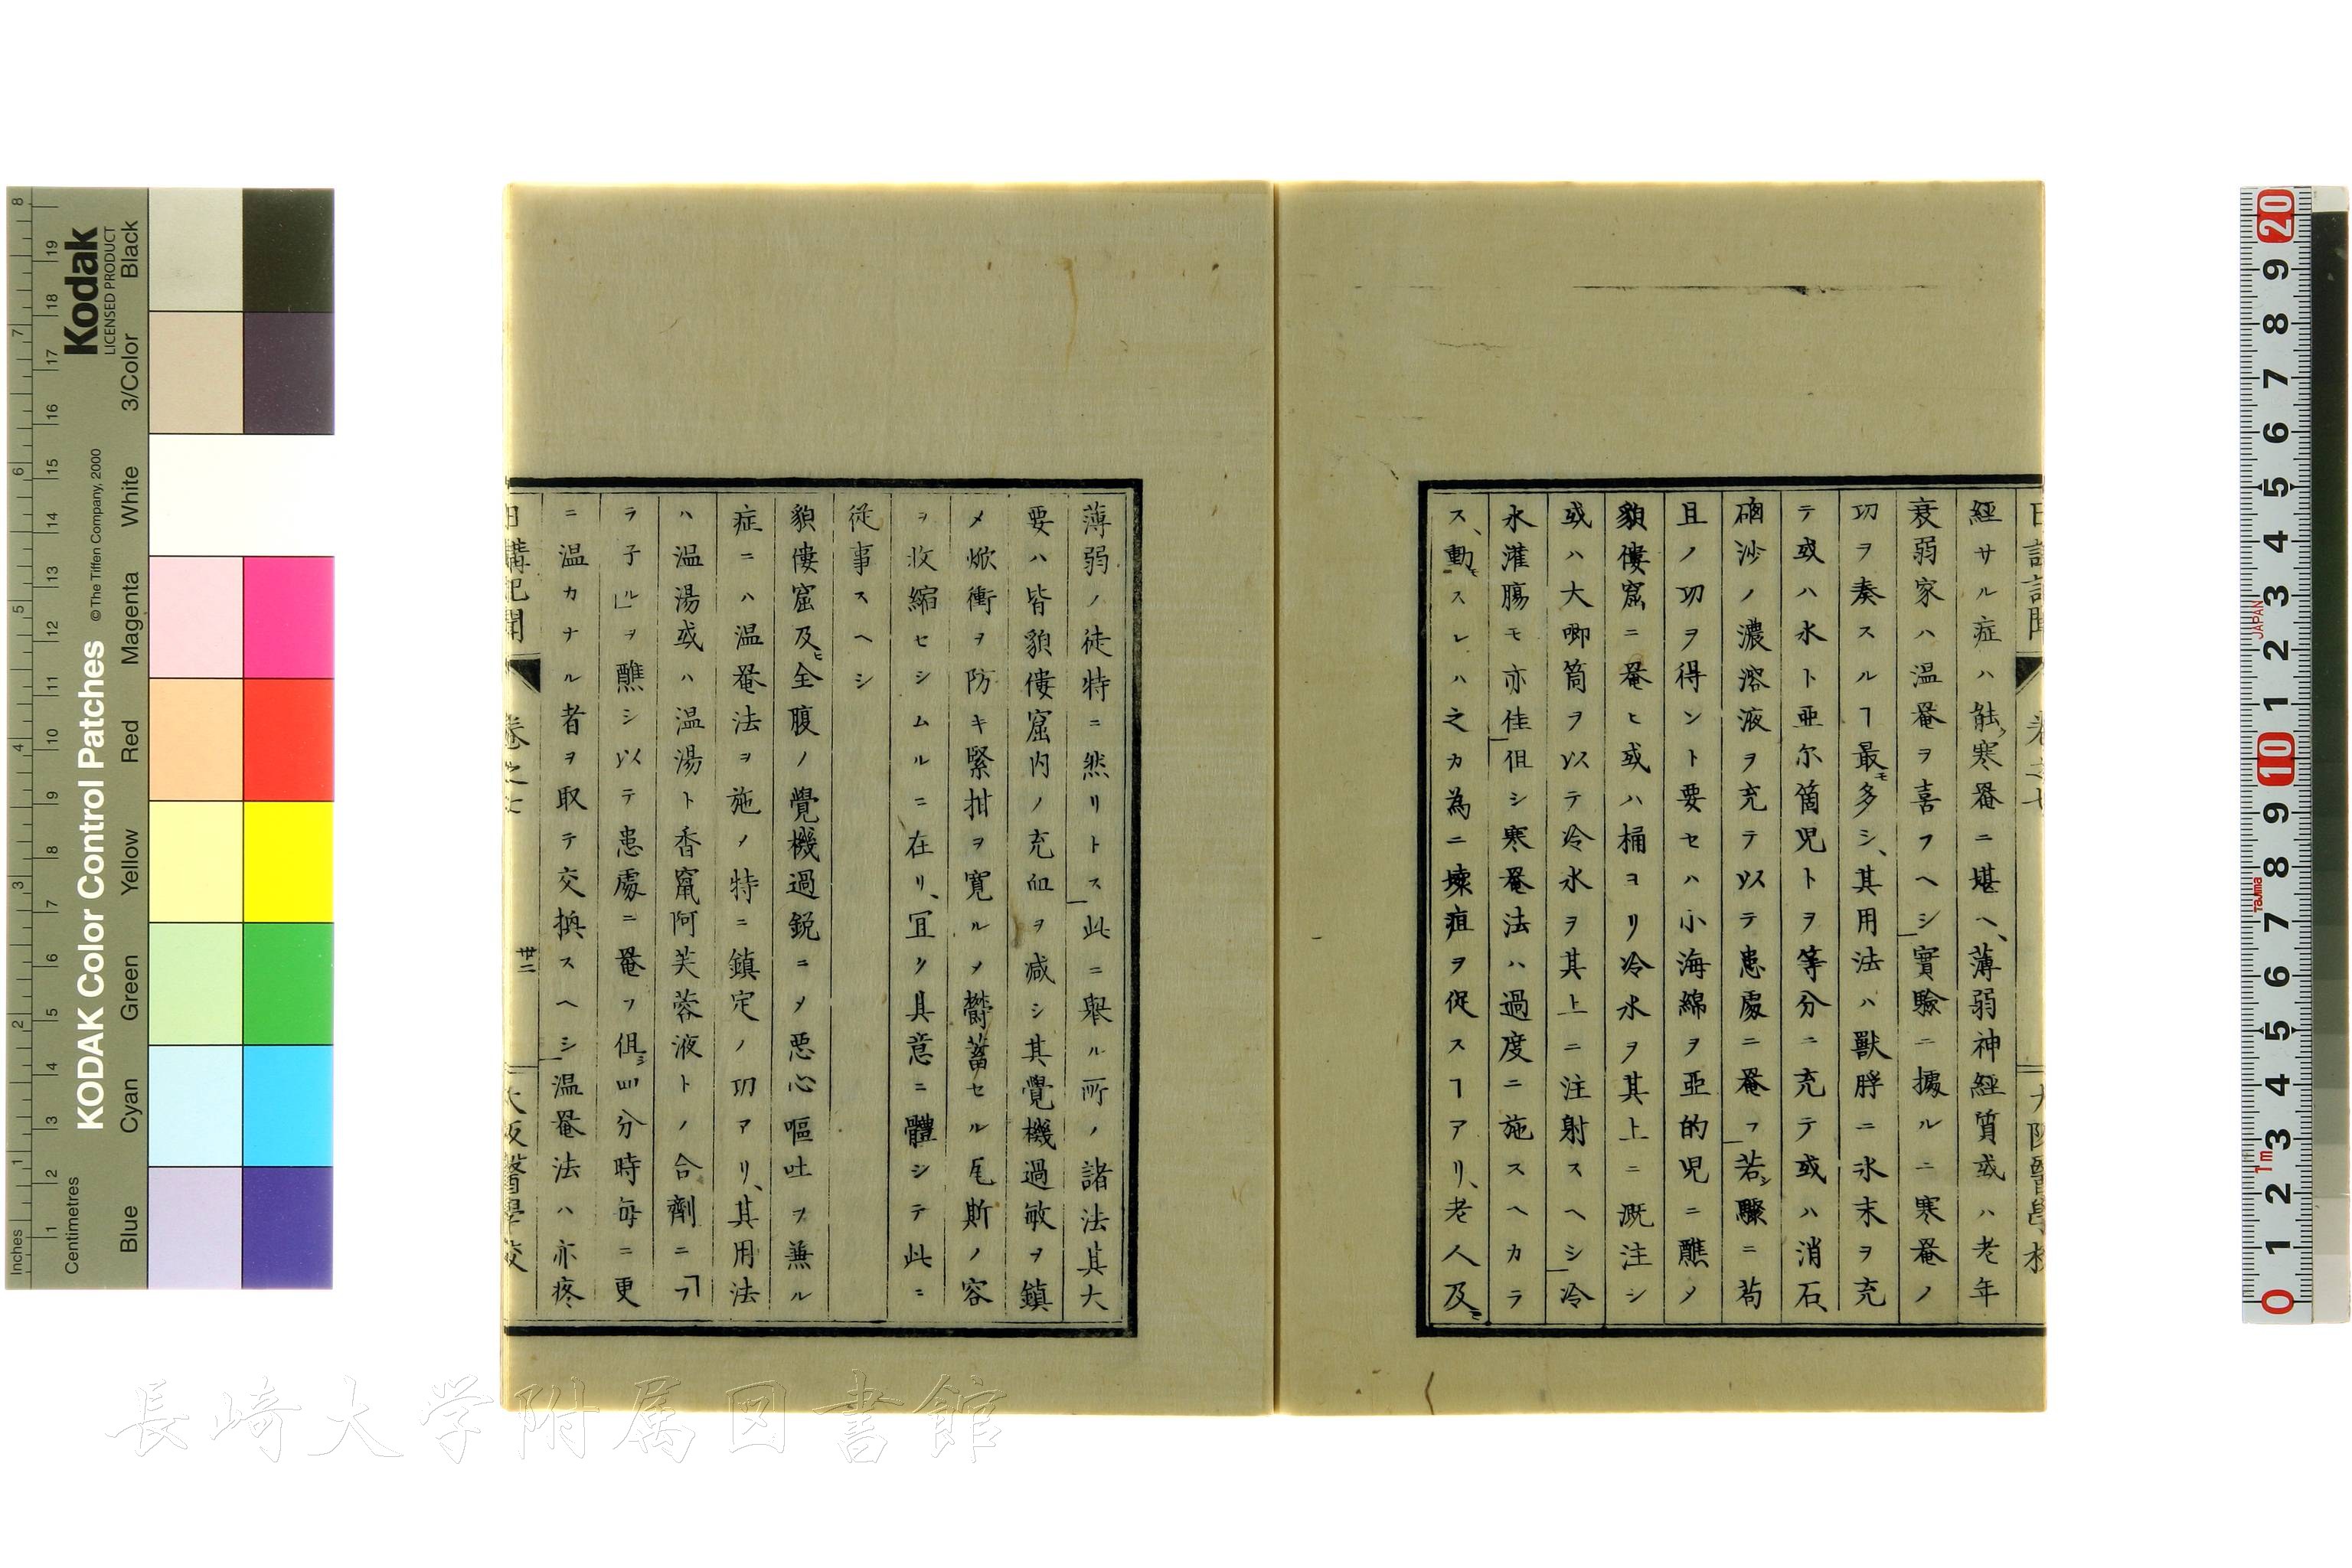 日講記聞 卷之七 大阪醫學校
經サル症ハ能ク寒罨ニ堪ヘ、薄弱神經質或ハ老年
衰弱家ハ温罨ヲ喜フヘシ實驗ニ據ルニ寒罨ノ
功ヲ奏スルヿ最モ多シ、其用法ハ獸脬ニ氷末ヲ充
テ或ハ水ト亜尔箇児トヲ等分ニ充テ或ハ消石、
硇沙ノ濃溶液ヲ充テ以テ患處ニ罨フ若シ驟ニ苟
且ノ功ヲ得ント要セハ小海綿ヲ亜的児ニ蘸メ
貌僂窟ニ罨ヒ或ハ桶ヨリ冷水ヲ其上ニ漑注シ
或ハ大喞筒ヲ以テ冷水ヲ其上ニ注射スヘシ冷
水灌腸モ亦佳但シ寒罨法ハ過度ニ施スヘカラ
ス、動モスレハ之カ為ニ壊疽ヲ促スヿアリ、老人及ヒ
薄弱ノ徒特ニ然リトス此ニ擧ル所ノ諸法其大
要ハ皆貌僂窟内ノ充血ヲ减シ其覺機過敏ヲ鎮
メ焮衝ヲ防キ緊拑ヲ寛ルメ欝蓄セル瓦斯ノ容
ヲ收縮セシムルニ在リ、宜ク其意ニ體シテ此ニ
從事スヘシ
貌僂窟及ヒ全腹ノ覺機過鋭ニメ悪心嘔吐ヲ兼ル
症ニハ温罨法ヲ施ノ特ニ鎮定ノ功アリ、其用法
ハ温湯或ハ温湯ト香竄阿芙蓉液トノ合劑ニ「フ
ラ子ル」ヲ蘸シ以テ患處ニ罨フ但シ四分時毎ニ更
ニ温カナル者ヲ取テ交換スヘシ温罨法ハ亦疼
日講記聞 卷之七 卅二 大阪醫學校
長崎大学附属図書館
KODAK Color Control Patches
Kodak
LICENSED PRODUCT
© The Tiffen Company, 2000
Inches
Centimetres
Blue
Cyan
Green
Yellow
Red
Magenta
White
3/Color
Black
JAPAN
Tajima
1m